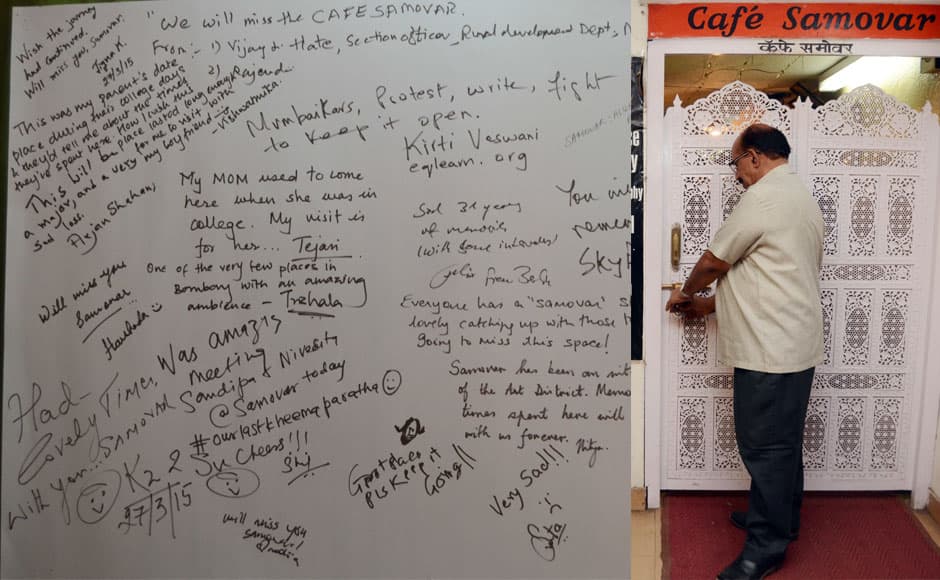 Wish the journey
had continued.
Will miss you, Samovar.
27/3/15
"We will miss the CAFE SAMOVAR.
From:- 1) Vijay Hate, Section officer, Rural development Dept,
2)
This was my parent's date
place during their college days
& they'd tell me about the times
they've spent here. How I wish this
place lasted long enough
for me to visit with
my boyfriend
- Vishwamitra
This will be
a major, and a very
sad loss.
Mumbaikars, Protest, write, fight
to keep it open.
Kirti Veswani
eqlearn.org
My MOM used to come
here when she was in
college. My visit is
for her... Tejari
One of the very few places in
Bombay with an amazing
ambience -
Will miss you
Samovar
Sad 31 years
of memories
(with some intervals)
from
You
Everyone has a "samovar" s
lovely catching up with those
going to miss this space!
Samovar has been an
of the Art District. Memo
times spent here will
with us forever.
Had
Lovely Times
With you... SAMOVAR
Was amazing
meeting
Sandipa & Nivesity
@ Samovar today
#ourlastkheemaparatha
Cheers!!!
K2 2
27/3/15
Great place
Pls Keep it
Going!!
Very Sad!!!
will miss you
samovar!
Café Samovar
कॅफे समोवर